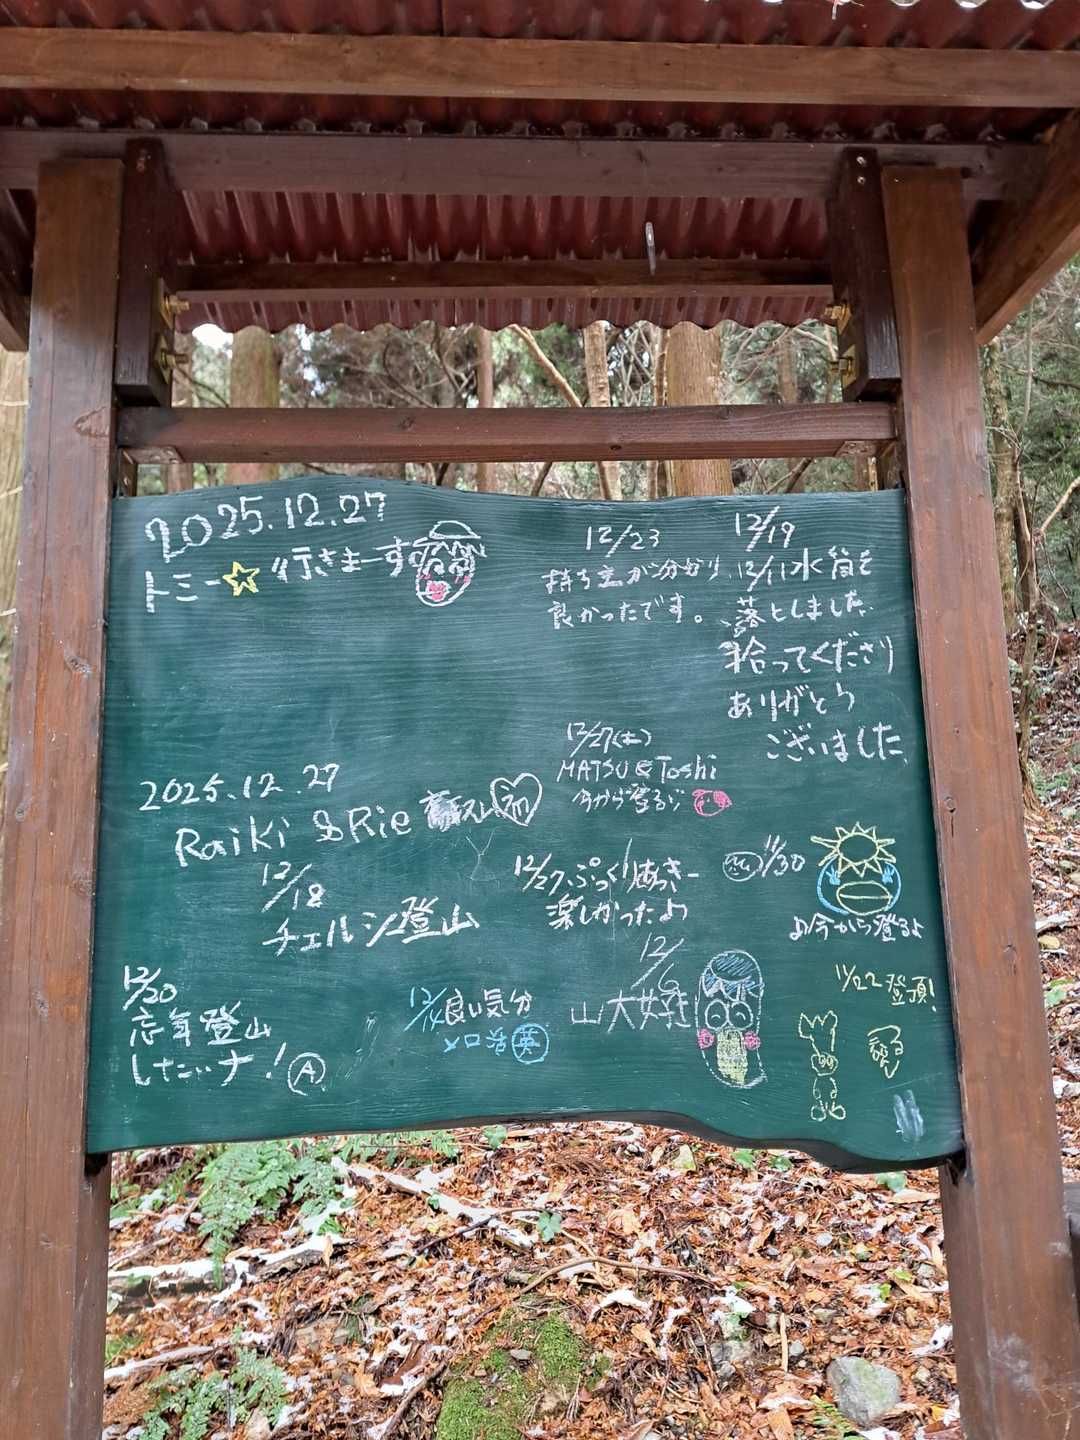 2025.12.27
トミー☆ 行きまーす
12/23
持ち主が分かり
良かったです。
12/19
12/11水筒を
落としました
拾ってくださり
ありがとう
ございました
12/27(土)
MATSU & Toshi
今から登るゾ
2025.12.27
Raiki & Rie
12/18
チェルシー登山
12/27
楽しかったよ
11/30
今から登るよ
12/20
忘年登山
したいナ! A
12/14 良い気分
英
12/6
山大好き
11/22 登頂!